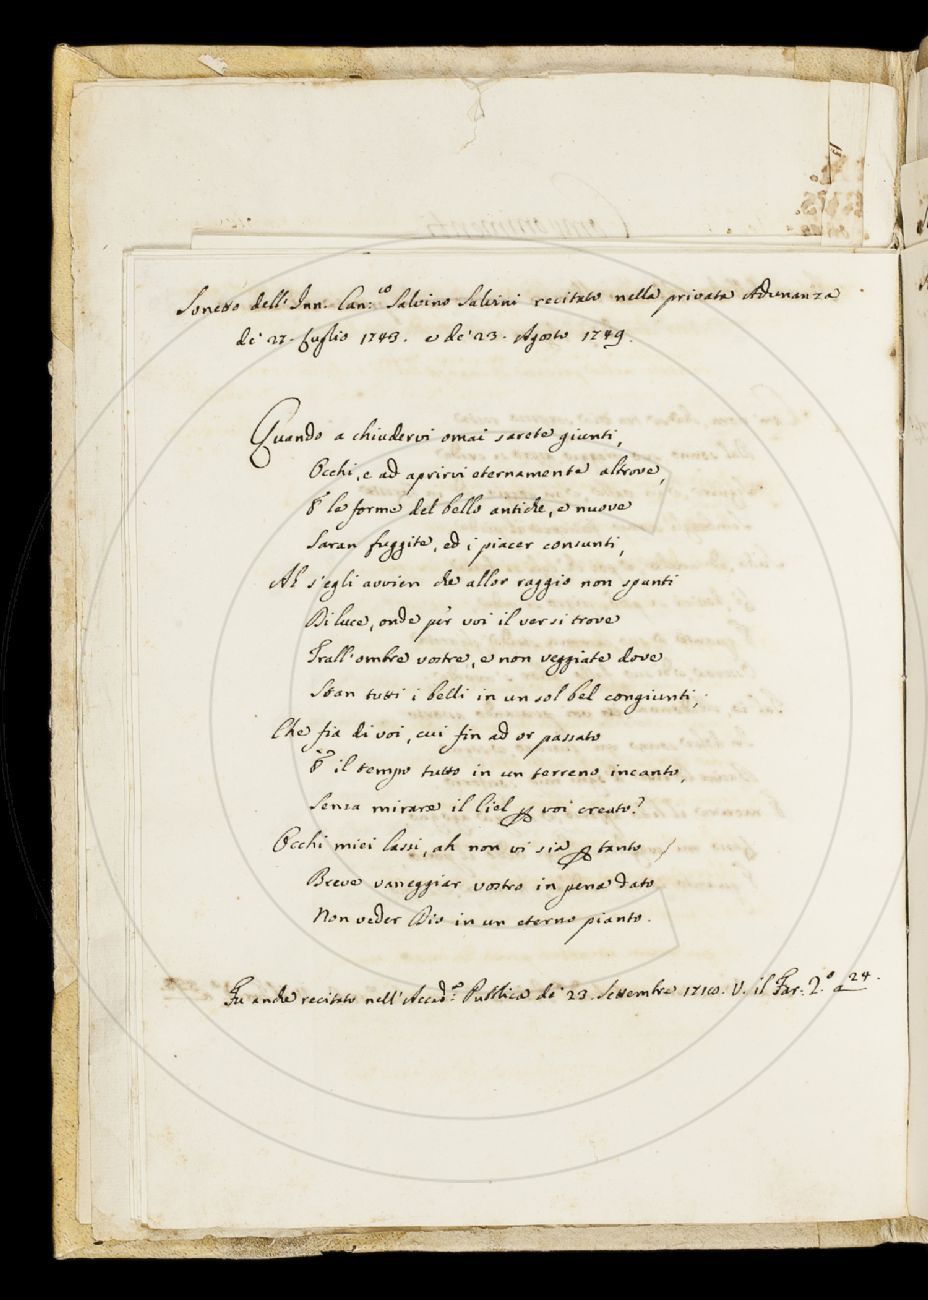 Sonetto dell' Inn. Can:co Salvino Salvini recitato nella privata Adunanza
de' 27. Luglio 1743. e de' 23. Agosto 1749.
Quando a chiudervi omai sarete giunti,
Occhi, e ad aprirvi eternamente altrove,
E le forme del bello antiche, e nuove
Saran fuggite, ed i piacer consunti,
Ah s'egli avvien che allor raggio non spunti
Di luce, onde per voi il ver si trove
Trall'ombre vostre, e non veggiate dove
Stan tutti i belli in un sol bel congiunti;
Che fia di voi, cui fin ad or passato
È il tempo tutto in un terreno incanto,
Senza mirare il Ciel per voi creato?
Occhi miei lassi, ah non vi sia per tanto
Breve vaneggiar vostro in pena dato
Non veder Dio in un eterno pianto.
Fu anche recitato nell'Accad:a Pubblica de' 23. Settembre V. il Far. 2.o a 24.